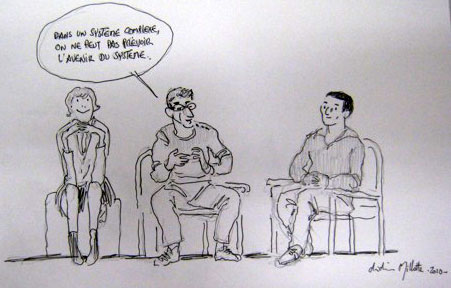 DANS UN SYSTÈME COMPLEXE,
ON NE PEUT PAS PRÉVOIR
L'AVENIR DU SYSTÈME.
Millotte - 2010 -